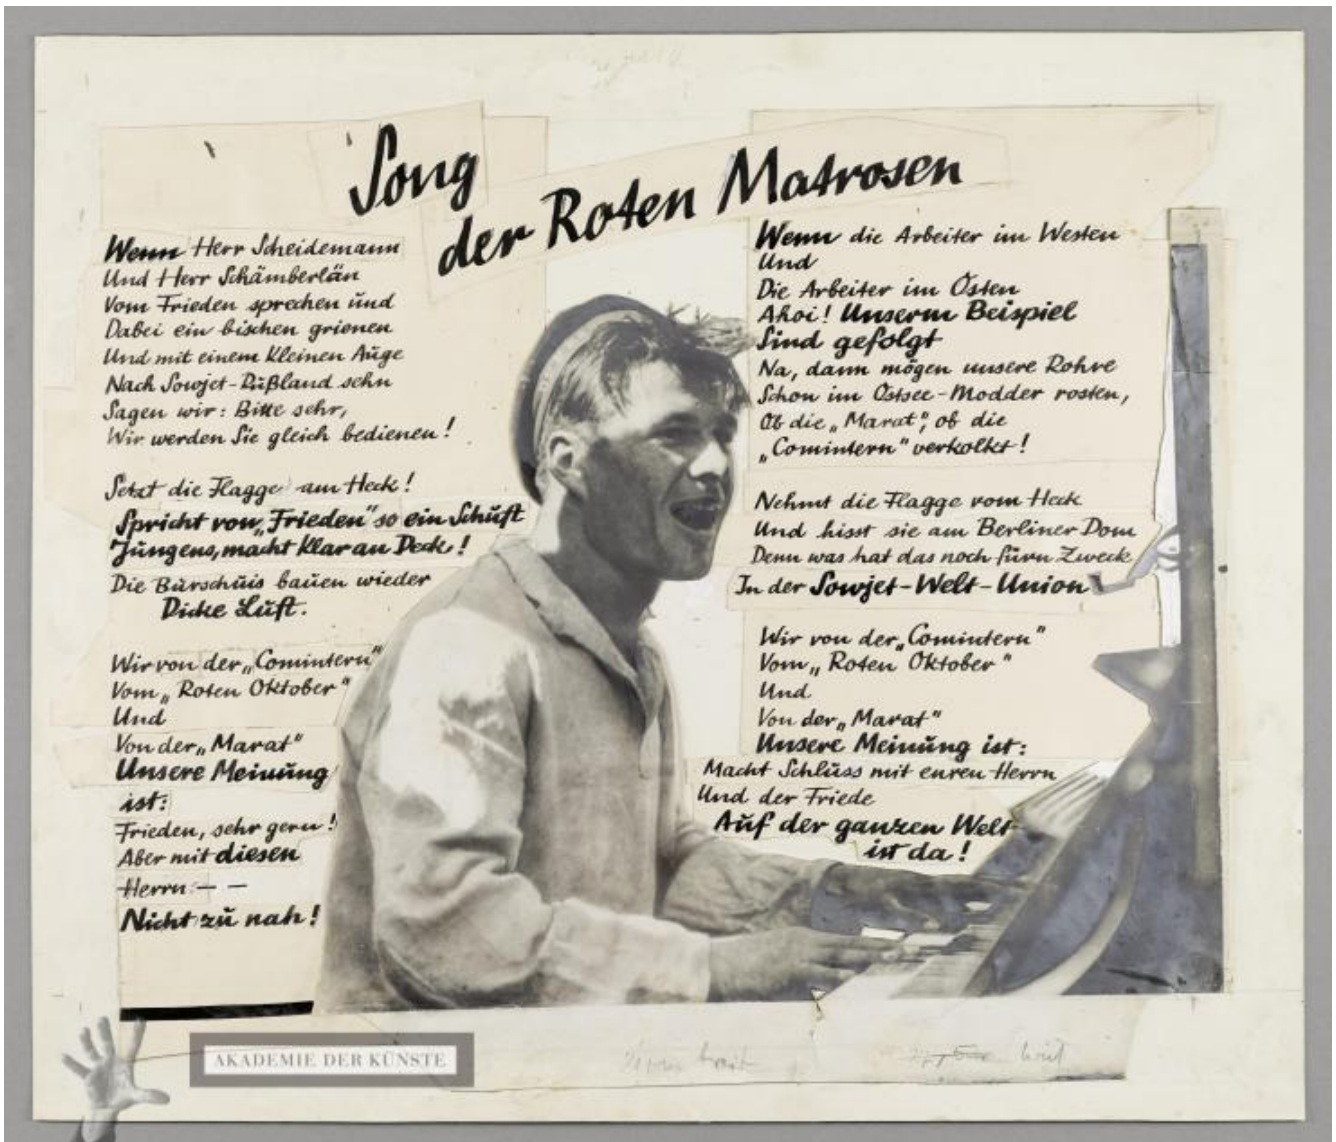 Song
der Roten Matrosen
Wenn Herr Scheidemann
Und Herr Schämberlän
Vom Frieden sprechen und
Dabei ein bischen grienen
Und mit einem Kleinen Auge
Nach Sowjet-Rußland sehn
Sagen wir: Bitte sehr,
Wir werden Sie gleich bedienen!
Setzt die Flagge am Heck!
Spricht von „Frieden" so ein Schuft
Jungens, macht Klar an Deck!
Die Burschuis bauen wieder
Dicke Luft.
Wir von der „Comintern"
Vom „Roten Oktober"
Und
Von der „Marat"
Unsere Meinung
ist:
Frieden, sehr gern!
Aber mit diesen
Herrn: – –
Nicht zu nah!
Wenn die Arbeiter im Westen
Und
Die Arbeiter im Osten
Ahoi! Unserm Beispiel
Sind gefolgt
Na, dann mögen unsere Rohre
Schon im Ostsee-Modder rosten,
Ob die „Marat", ob die
„Comintern" verkolkt!
Nehmt die Flagge vom Heck
Und hisst sie am Berliner Dom
Denn was hat das noch fürn Zweck
In der Sowjet-Welt-Union
Wir von der „Comintern"
Vom „Roten Oktober"
Und
Von der „Marat"
Unsere Meinung ist:
Macht Schluss mit euren Herrn
Und der Friede
Auf der ganzen Welt
ist da!
AKADEMIE DER KÜNSTE